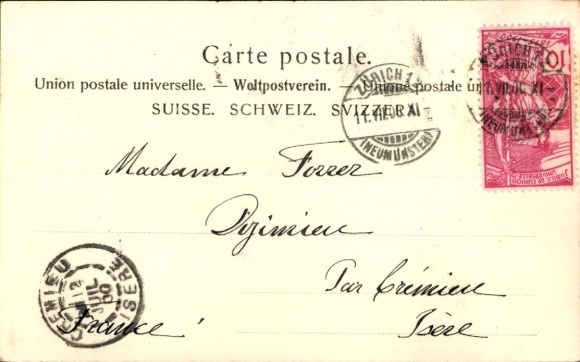 Carte postale.
Union postale universelle. — Weltpostverein. — Unione postale un
SUISSE. SCHWEIZ. SVIZZERA.
ZÜRICH 1
11.VII.00. XI
(NEUMÜNSTER)
10
Madame Forrer
Dizimieu
Par Crémieu
Isère
France
CREMIEU
12
JUIL
00
ISERE